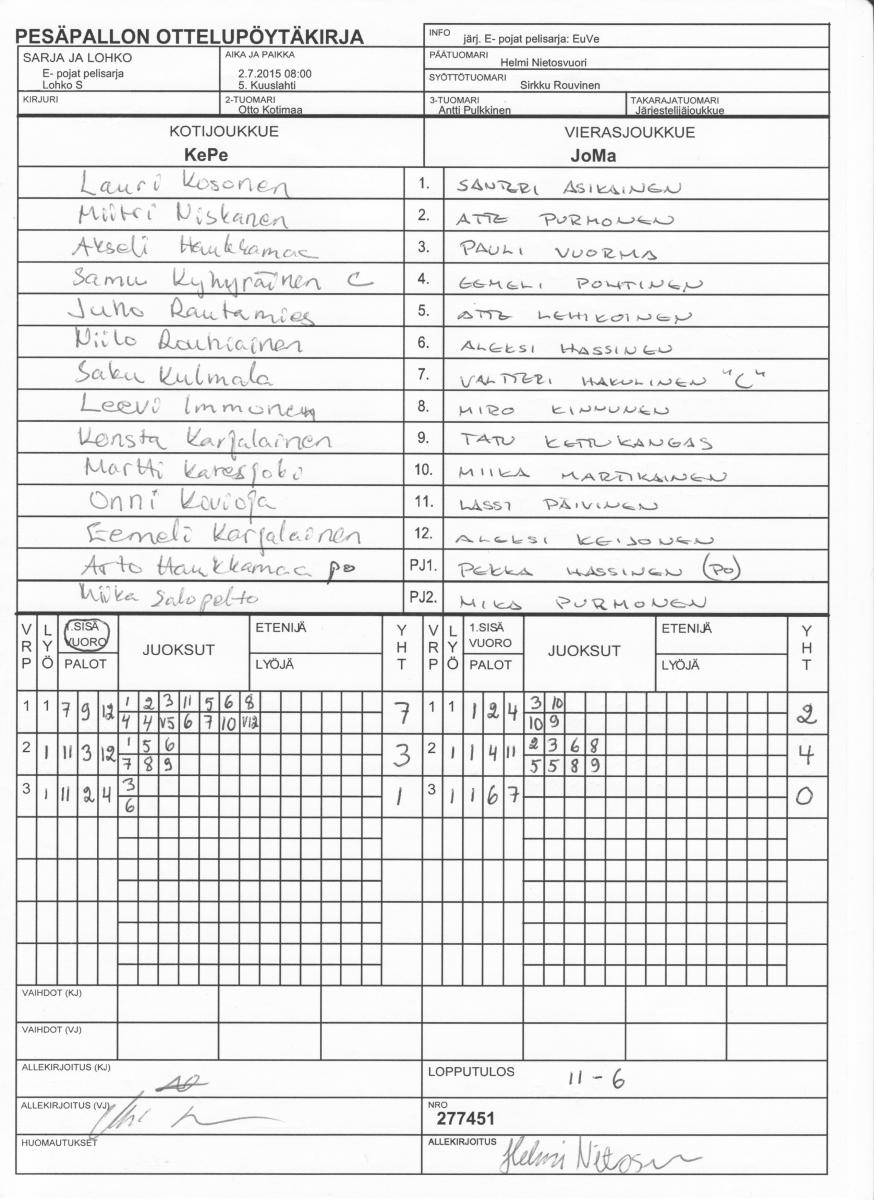 PESÄPALLON OTTELUPÖYTÄKIRJA
INFO järj. E- pojat pelisarja: EuVe
SARJA JA LOHKO
E- pojat pelisarja
Lohko S
AIKA JA PAIKKA
2.7.2015 08:00
5. Kuuslahti
PÄÄTUOMARI Helmi Nietosvuori
SYÖTTÖTUOMARI Sirkku Rouvinen
KIRJURI
2-TUOMARI Otto Kotimaa
3-TUOMARI Antti Pulkkinen
TAKARAJATUOMARI Järjestelijäjoukkue
KOTIJOUKKUE VIERASJOUKKUE
KePe JoMa
Lauri Kosonen 1. SANTERI ASIKAINEN
Miitri Niskanen 2. ATTE PURMONEN
Akseli Haukkamaa 3. PAULI VUORMA
Samu Kyhyräinen C 4. EEMELI POHTINEN
Juho Rautamies 5. ATTE LEHIKOINEN
Niilo Rouhiainen 6. ALEKSI HASSINEN
Saku Kulmala 7. VALTTERI HAKULINEN "C"
Leevi Immonen 8. MIRO KINNUNEN
Konsta Karjalainen 9. TATU KETTUKANGAS
Martti Karesjoki 10. MIIKA MARTIKAINEN
Onni Kovioja 11. LASSI PÄIVINEN
Eemeli Karjalainen 12. ALEKSI KEIJONEN
Arto Haukkamaa po PJ1. PEKKA HASSINEN (PO)
Miika Salopelto PJ2. MIKA PURMONEN
VRP LYÖ 1.SISÄ VUORO PALOT JUOKSUT ETENIJÄ LYÖJÄ YHT VRP LYÖ 1.SISÄ VUORO PALOT JUOKSUT ETENIJÄ LYÖJÄ YHT
1 1 7 9 12 1 2 3 11 5 6 8 7 1 1 1 2 4 3 10 2
4 4 V5 6 7 10 V12 10 9
2 1 11 3 12 1 5 6 3 2 1 1 4 11 2 3 6 8 4
7 8 9 5 5 8 9
3 1 11 2 4 3 1 3 1 1 6 7 0
6
VAIHDOT (KJ)
VAIHDOT (VJ)
ALLEKIRJOITUS (KJ)
LOPPUTULOS 11-6
ALLEKIRJOITUS (VJ)
NRO
277451
HUOMAUTUKSET
ALLEKIRJOITUS Helmi